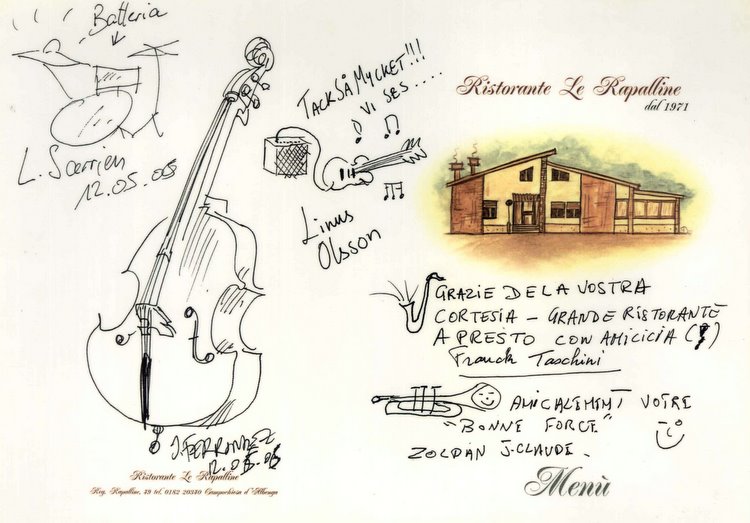 Batteria
L. Scarrieu
12.05.06
TACK SÅ MYCKET!!!
VI SES....
Linus
Olsson
J. FERRANDEZ
12.05.06
Ristorante Le Rapalline
Reg. Rapalline, 49 tel. 0182 20340 Campochiesa d'Albenga
Ristorante Le Rapalline
dal 1971
GRAZIE DE LA VOSTRA
CORTESIA – GRANDE RISTORANTE
A PRESTO CON AMICICIA
Franck Taschini
AMICALEMENT VOTRE
"BONNE FORCE"
ZOLDAN J-CLAUDE.
Menù